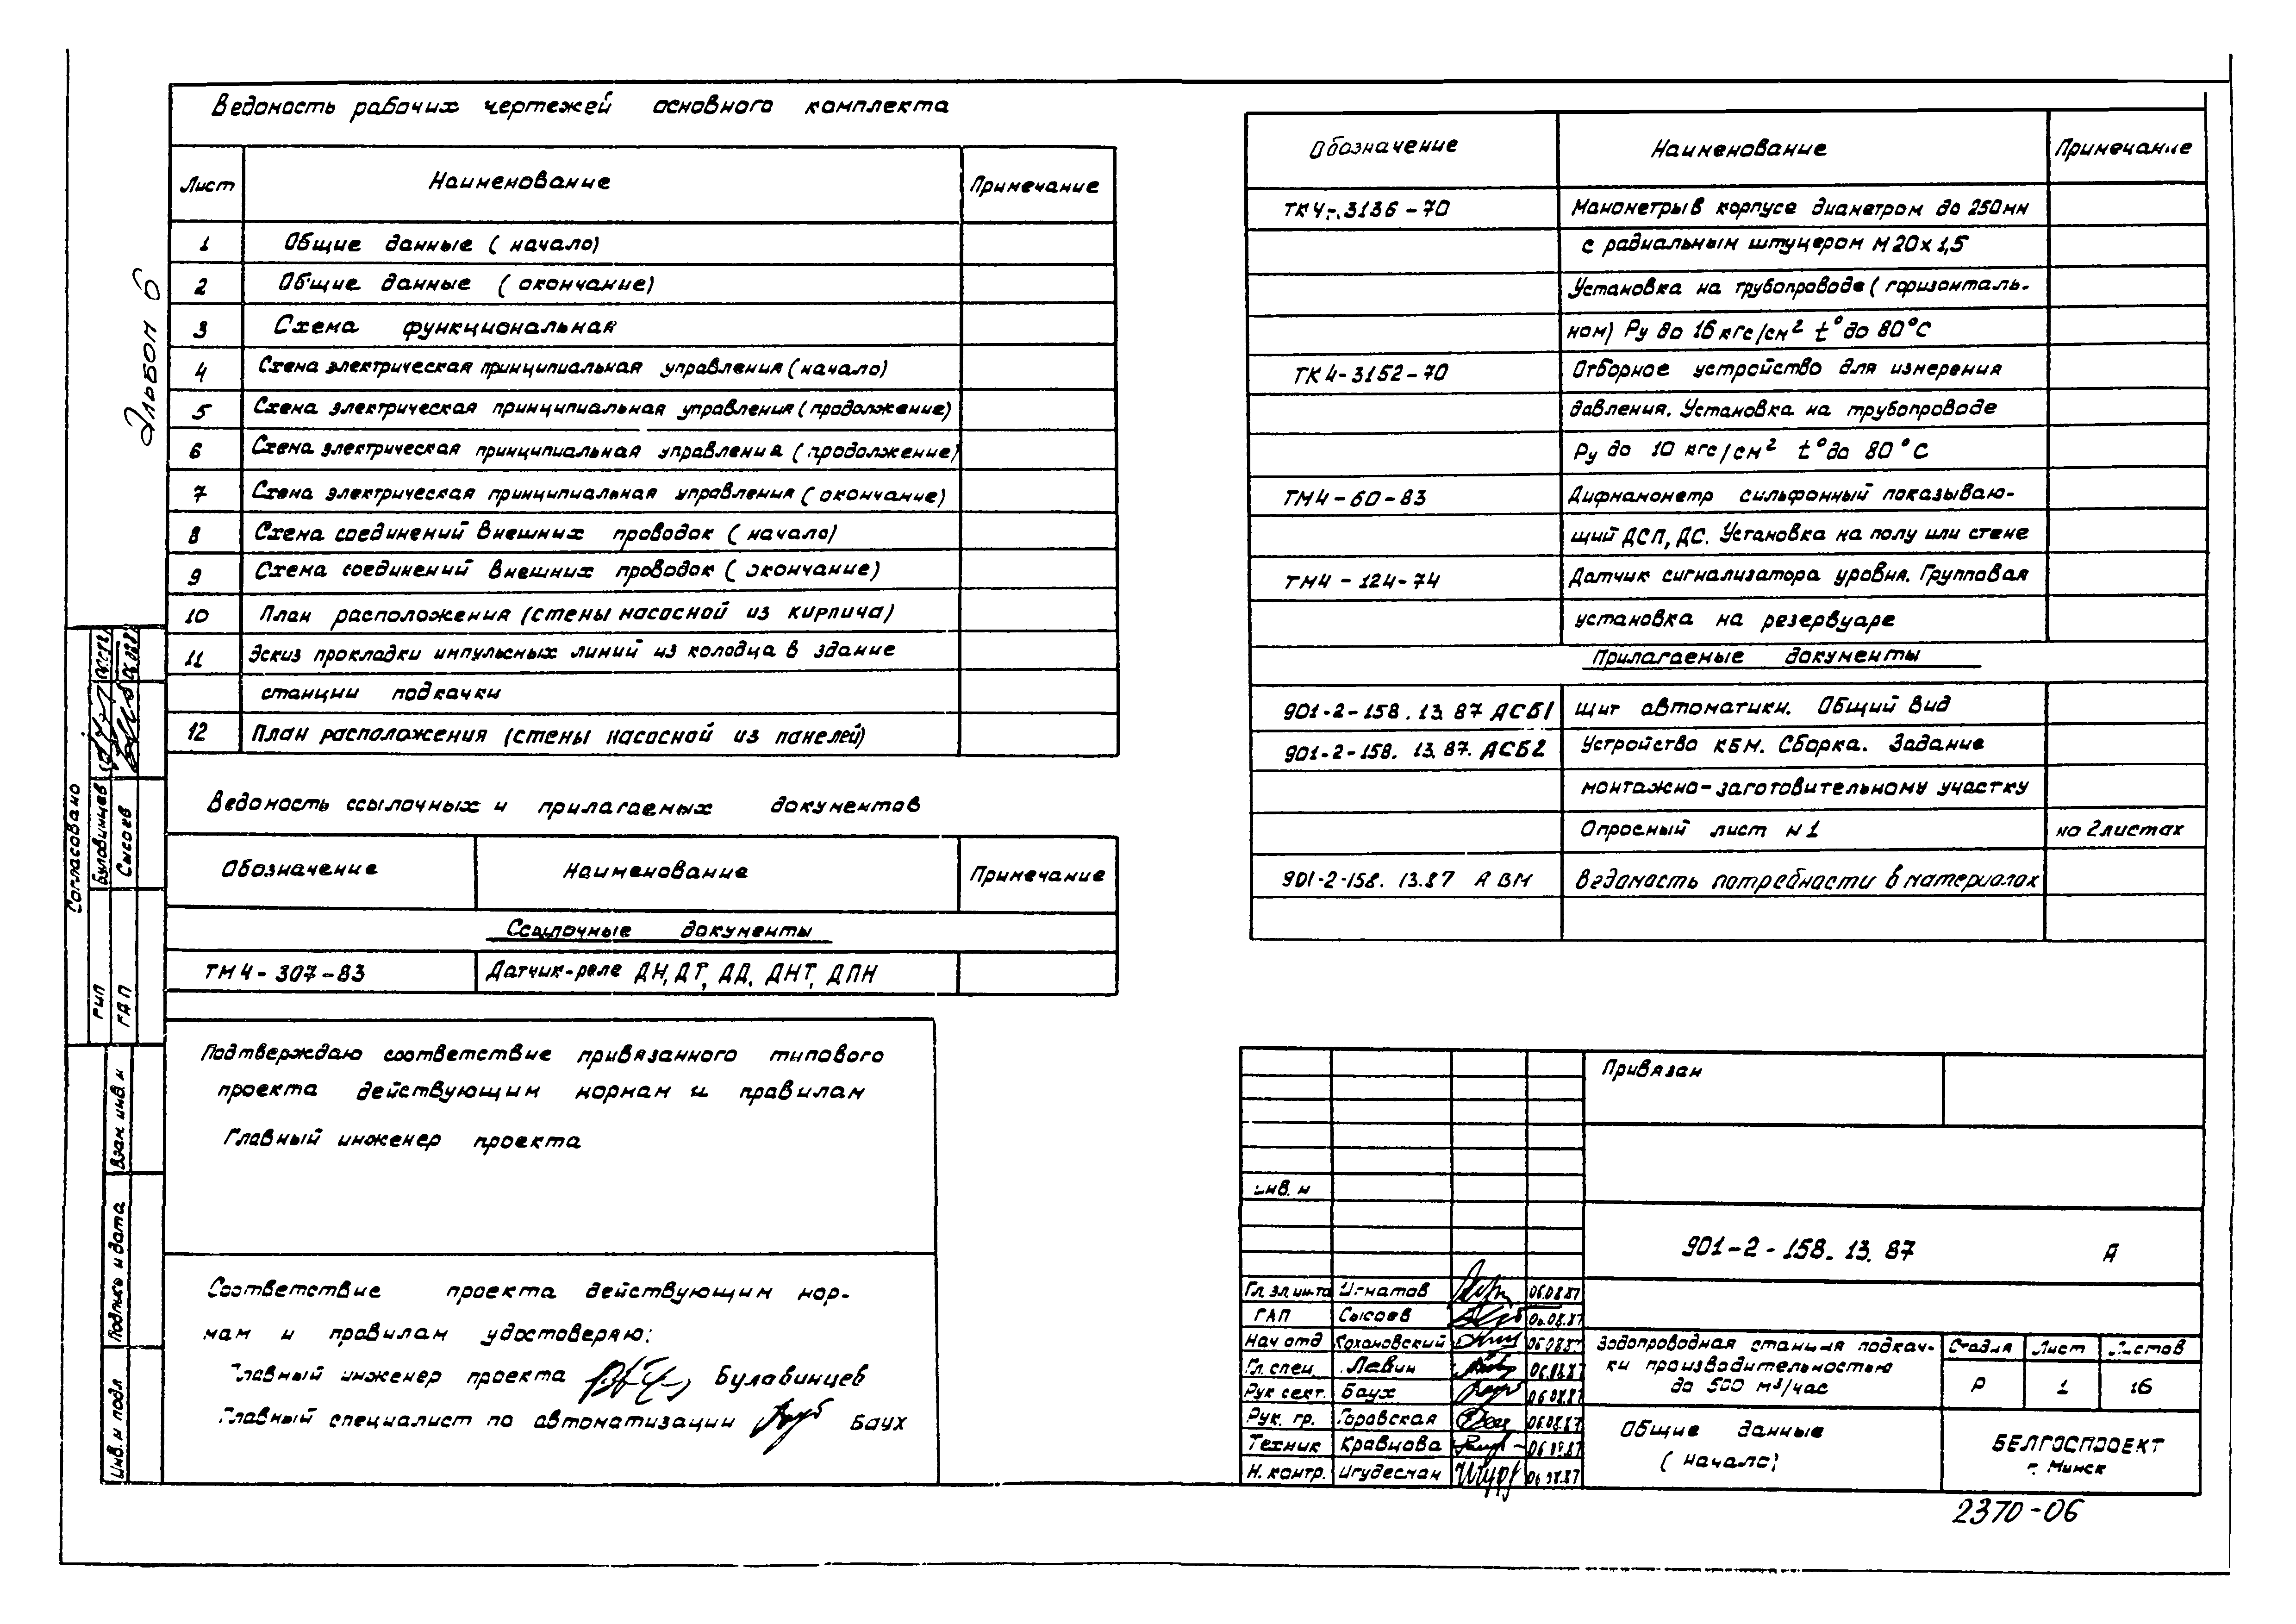 Альбом 6
Ведомость рабочих чертежей основного комплекта
Лист Наименование Примечание
1 Общие данные (начало)
2 Общие данные (окончание)
3 Схема функциональная
4 Схема электрическая принципиальная управления (начало)
5 Схема электрическая принципиальная управления (продолжение)
6 Схема электрическая принципиальная управления (продолжение)
7 Схема электрическая принципиальная управления (окончание)
8 Схема соединений внешних проводок (начало)
9 Схема соединений внешних проводок (окончание)
10 План расположения (стены насосной из кирпича)
11 Эскиз прокладки импульсных линий из колодца в здание
станции подкачки
12 План расположения (стены насосной из панелей)
Ведомость ссылочных и прилагаемых документов
Обозначение Наименование Примечание
Ссылочные документы
ТМ4-307-83 Датчик-реле ДН, ДТ, ДД, ДНТ, ДПН
Подтверждаю соответствие привязанного типового
проекта действующим нормам и правилам
Главный инженер проекта
Соответствие проекта действующим нор-
мам и правилам удостоверяю:
Главный инженер проекта Булавинцев
Главный специалист по автоматизации Баух
Обозначение Наименование Примечание
ТК4-3136-70 Манометры в корпусе диаметром до 250мм
с радиальным штуцером М20х1,5
Установка на трубопроводе (горизонталь-
ном) Ру до 16 кгс/см² t° до 80°С
ТК4-3152-70 Отборное устройство для измерения
давления. Установка на трубопроводе
Ру до 10 кгс/см² t° до 80°С
ТМ4-60-83 Дифманометр сильфонный показываю-
щий ДСП, ДС. Установка на полу или стене
ТМ4-124-74 Датчик сигнализатора уровня. Групповая
установка на резервуаре
Прилагаемые документы
901-2-158.13.87 АСБ1 Щит автоматики. Общий вид
901-2-158.13.87. АСБ2 Устройство КБМ. Сборка. Задание
монтажно-заготовительному участку
Опросный лист N1 на 2 листах
901-2-158.13.87 А ВМ Ведомость потребности в материалах
Привязан
инв. N
901-2-158.13.87 А
Гл.эл.ин-та Игнатов 06.08.87
ГАП Сысоев 06.08.87
Нач отд Кохановский 06.08.87
Гл. спец. Левин 06.08.87
Рук сект. Баух 06.08.87
Рук. гр. Горовская 06.08.87
Техник Кравцова 06.08.87
Н. контр. Игудесман 06.08.87
Водопроводная станция подкач-
ки производительностью
до 500 м³/час
Стадия Лист Листов
Р 1 16
Общие данные
(начало)
БЕЛГОСПРОЕКТ
г. Минск
2370-06
Согласовано
ГИП Булавинцев
ГАП Сысоев
Взам. инв. N
Подпись и дата
Инв. N подл